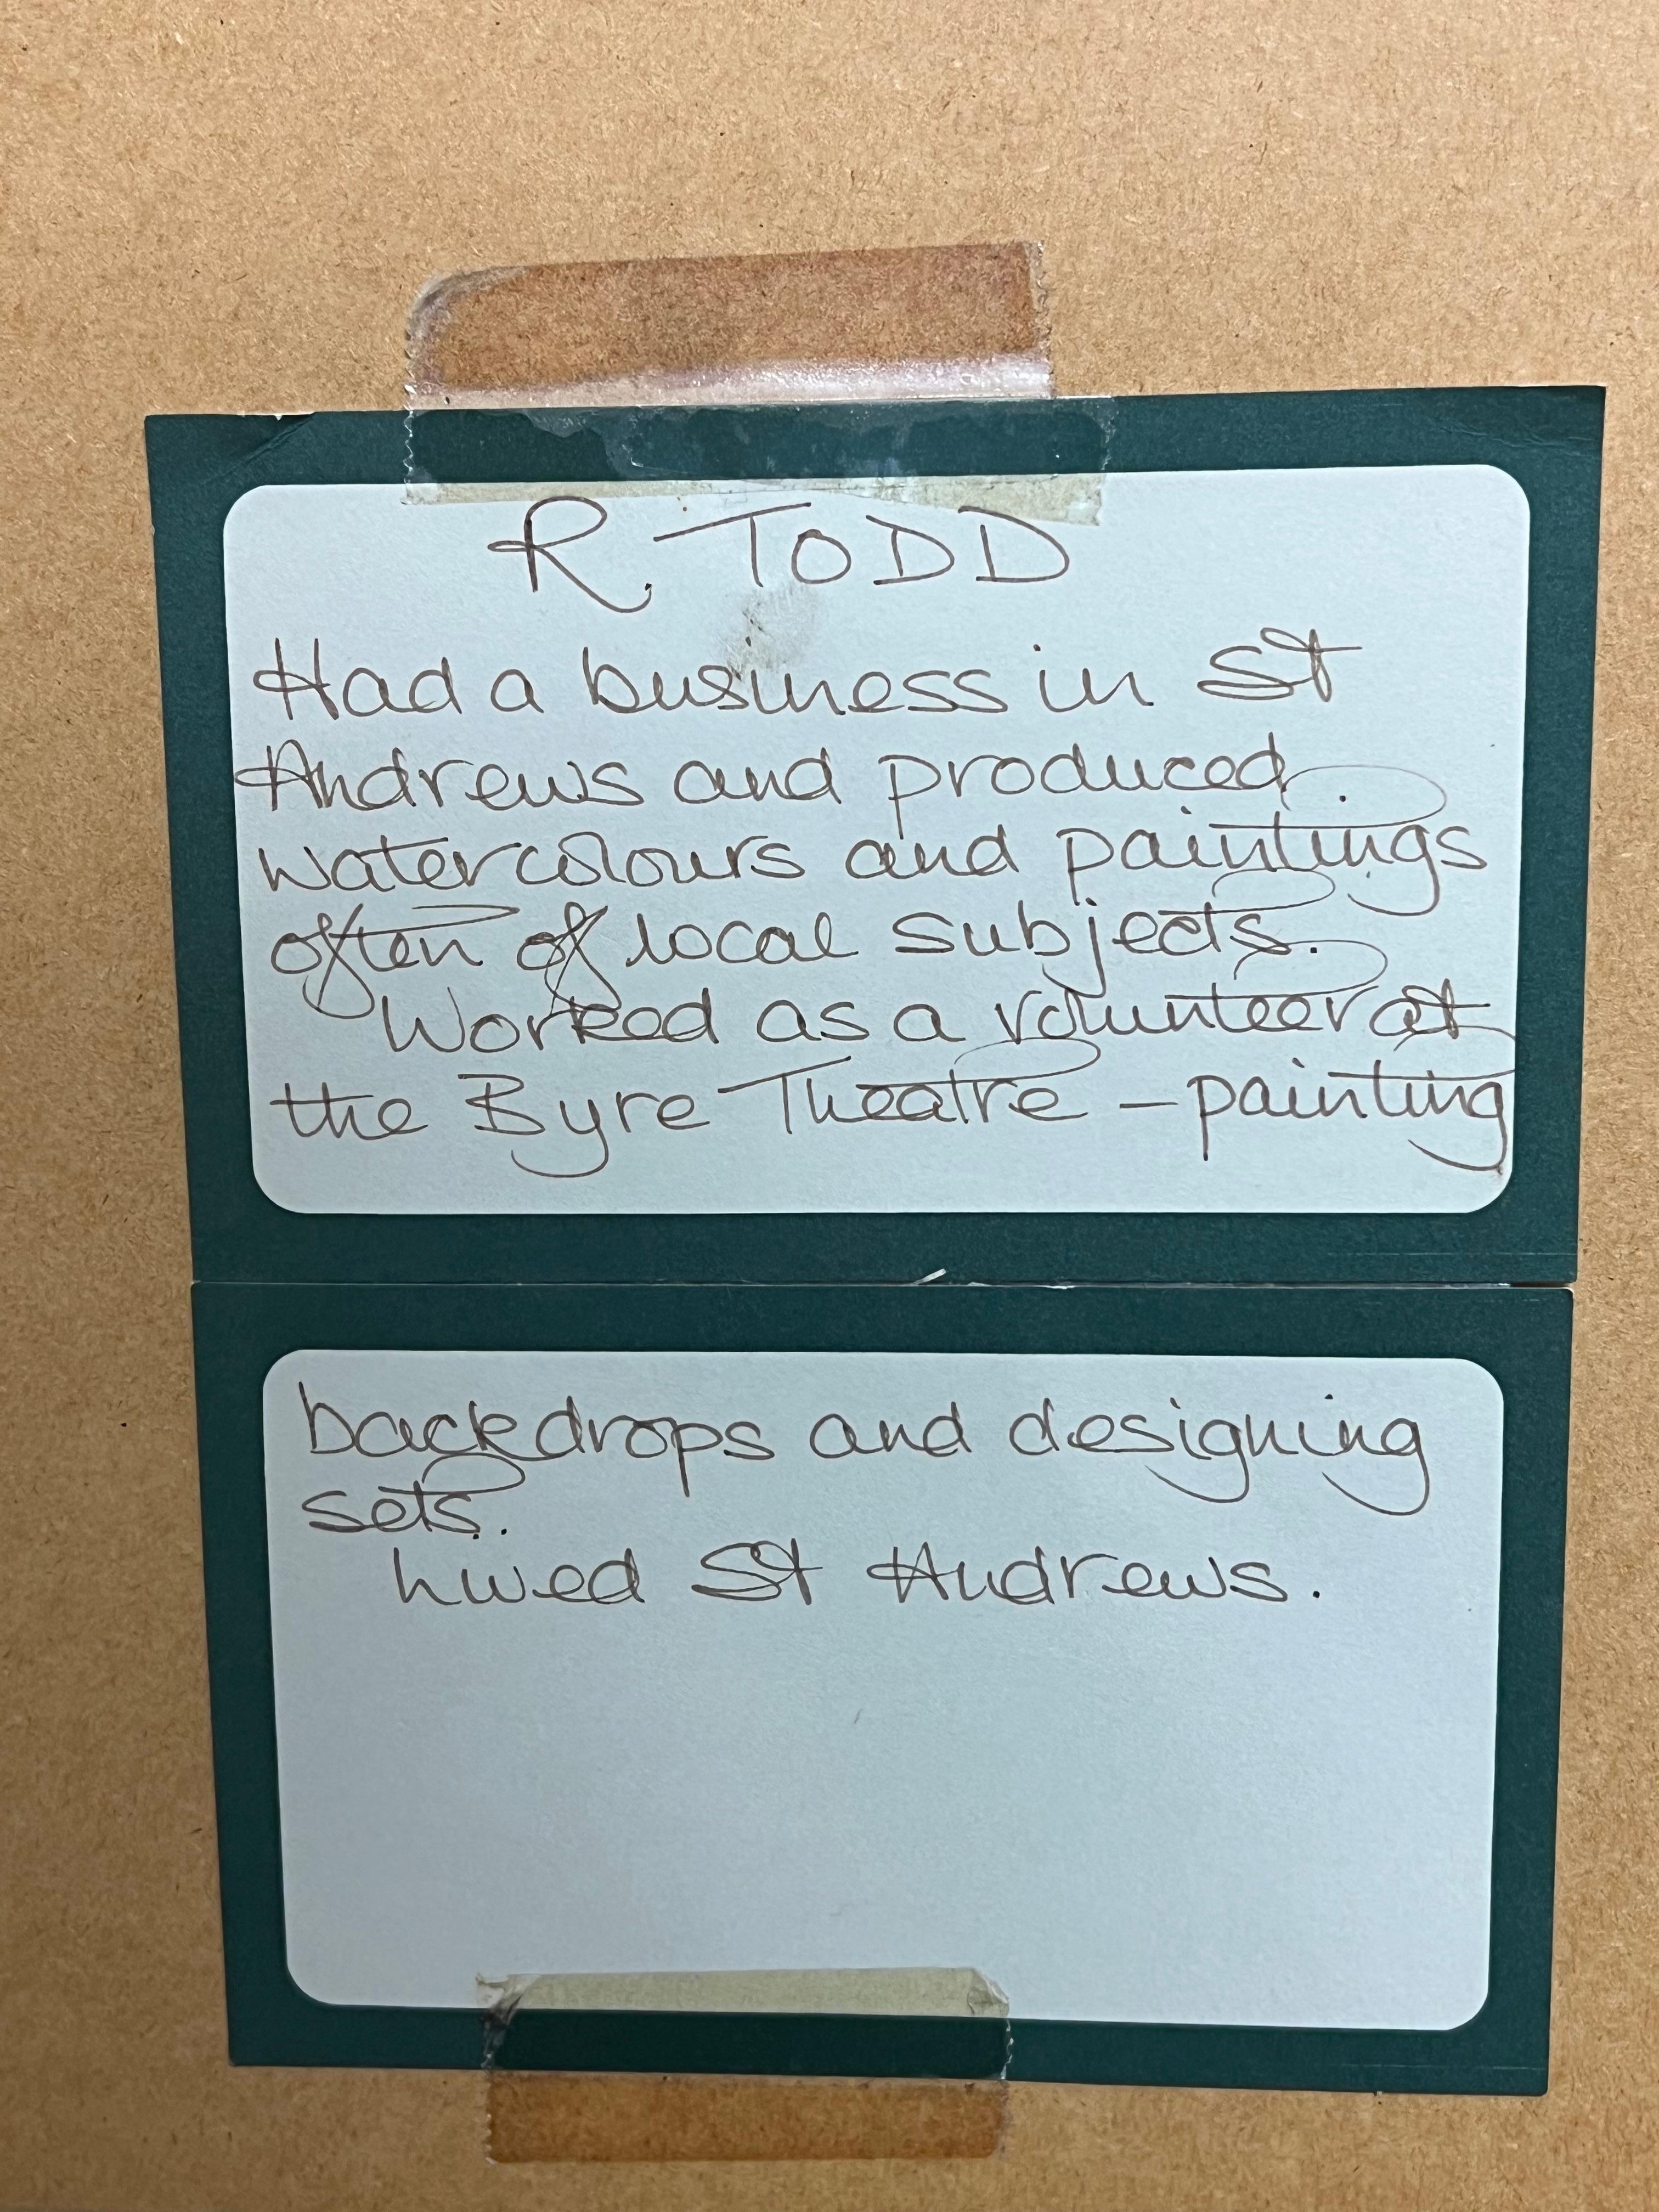 R. TODD
Had a business in St
Andrews and produced
watercolours and paintings
often of local subjects.
Worked as a volunteer at
the Byre Theatre - painting
backdrops and designing
sets.
Lived St Andrews.